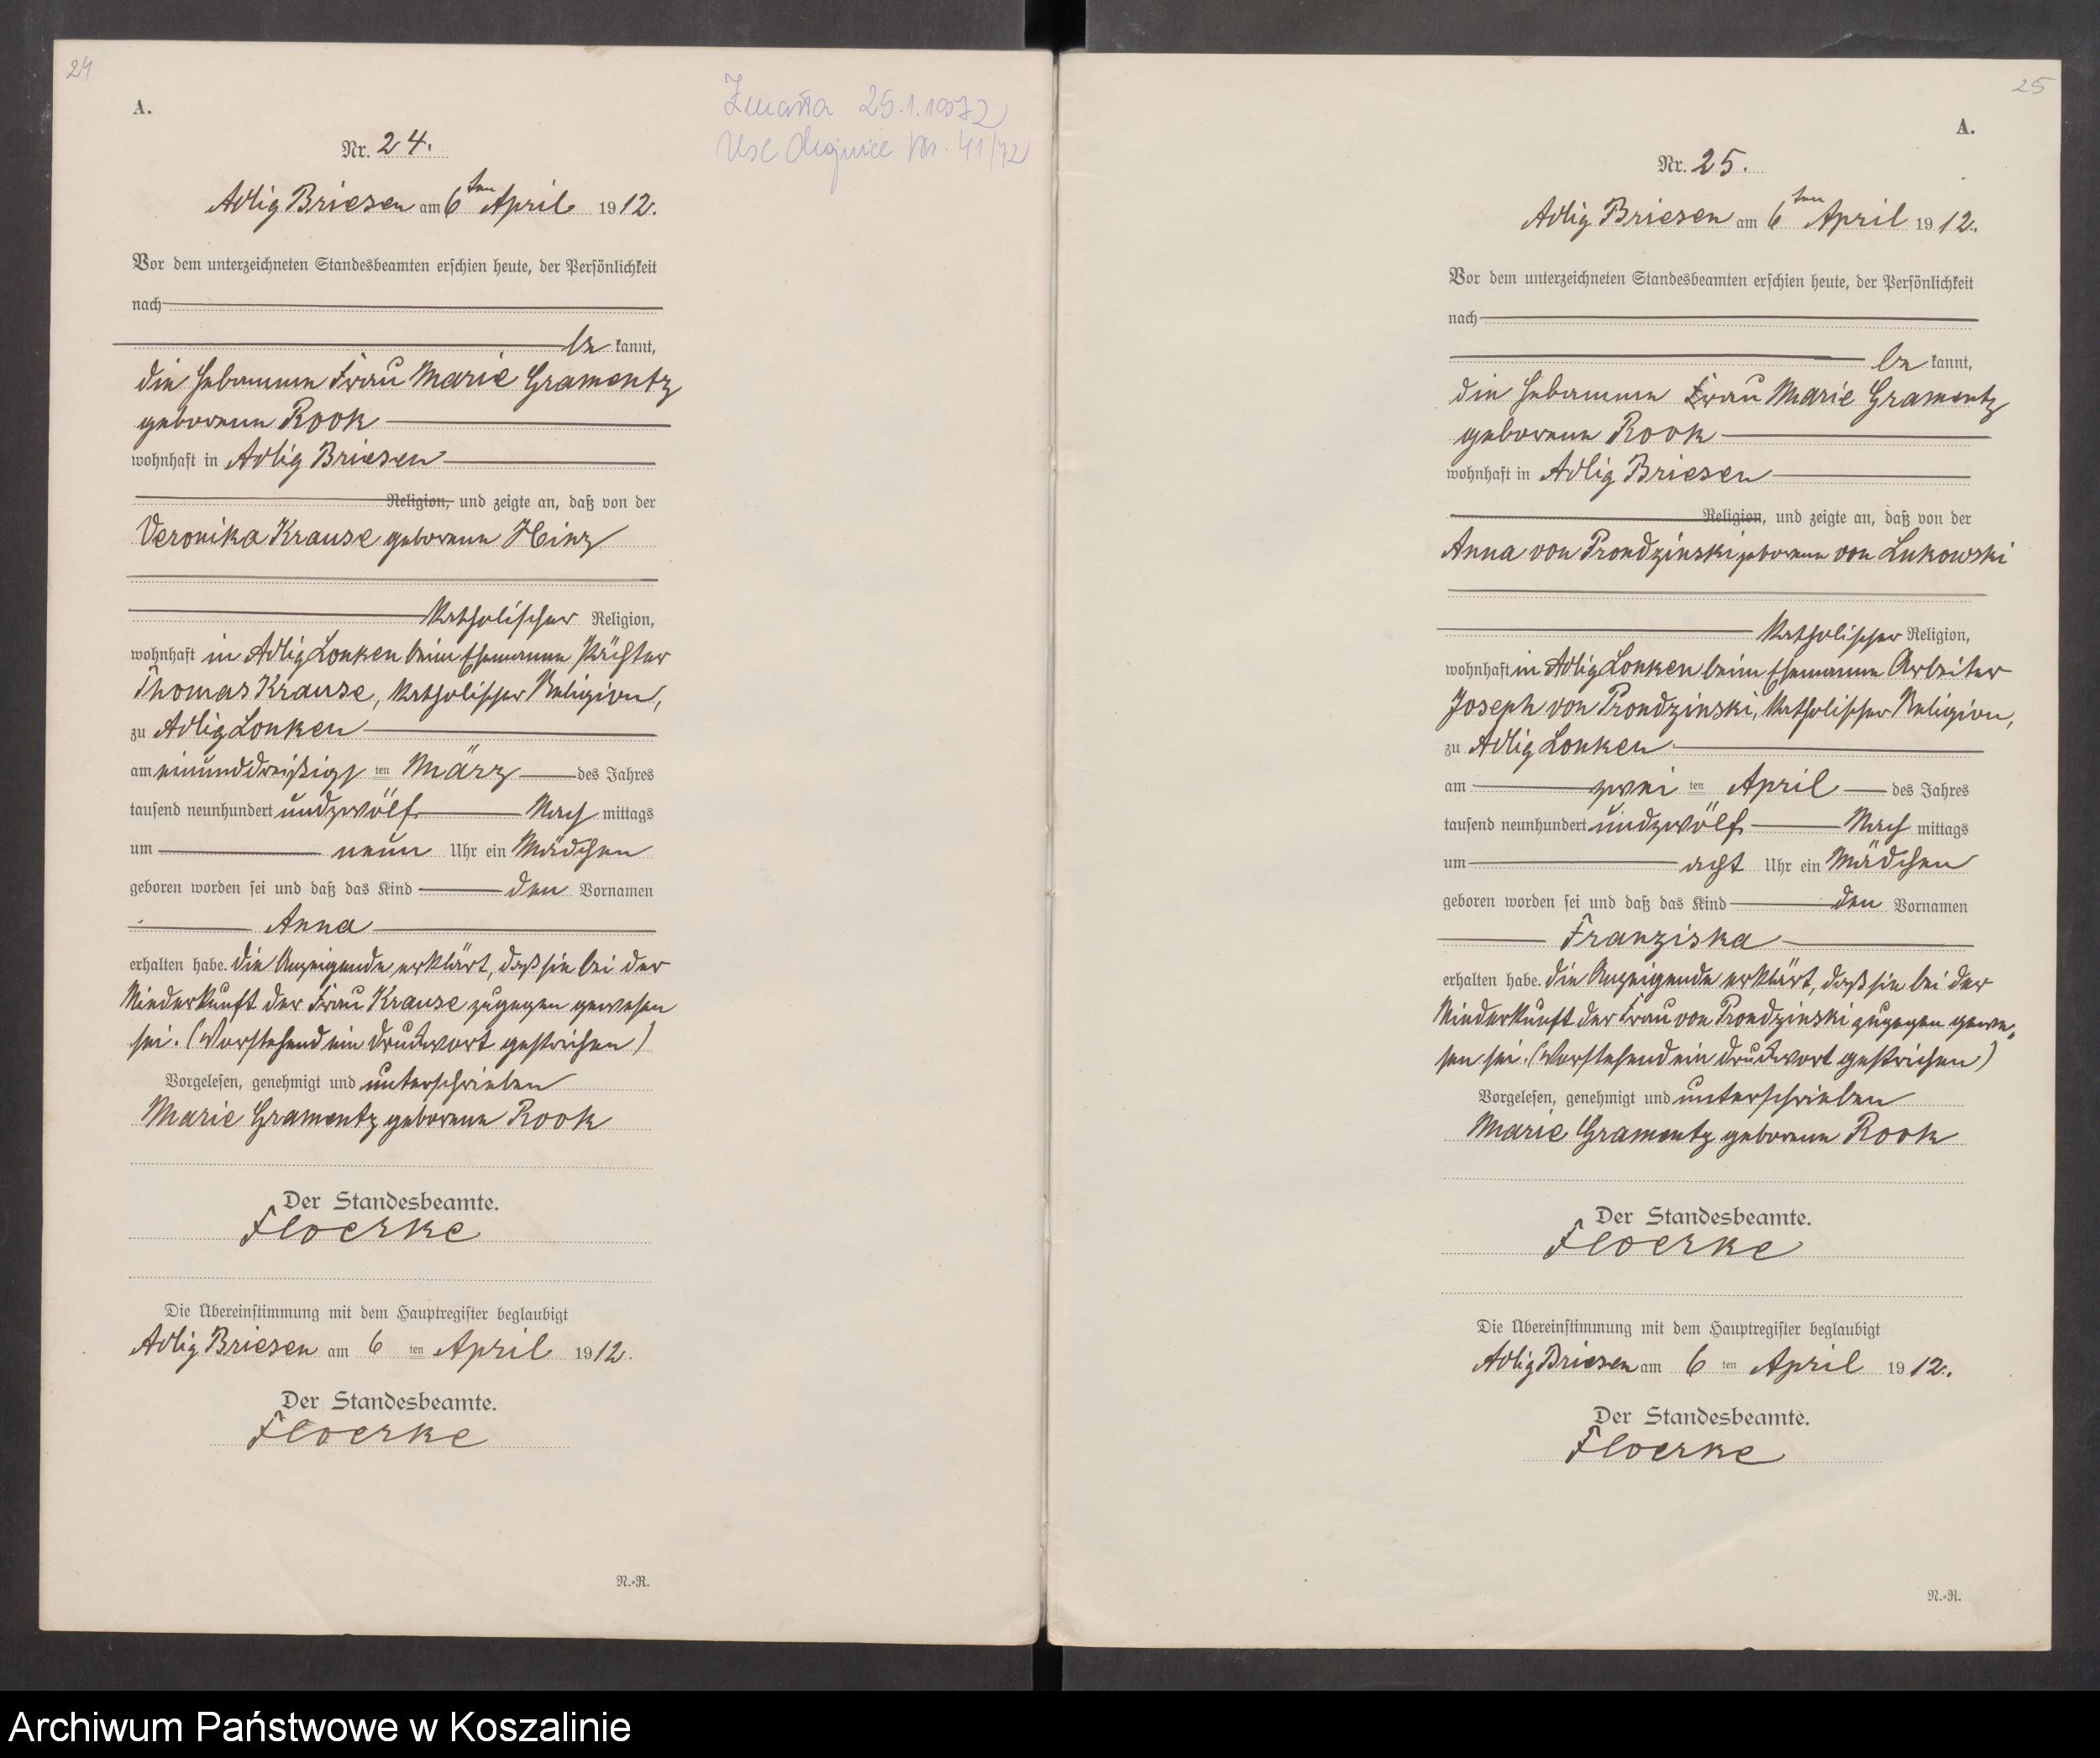 24
A.
Nr. 24.
Adlig Briesen am 6ten April 1912.
Vor dem unterzeichneten Standesbeamten erschien heute, der Persönlichkeit
nach
be kannt,
die Hebamme Frau Marie Gramentz
geborene Rook
wohnhaft in Adlig Briesen
Religion, und zeigte an, daß von der
Veronika Krause geborene Hinz
katholischer Religion,
wohnhaft in Adlig Lonken beim Ehemanne Pächter
Thomas Krause, katholischer Religion,
zu Adlig Lonken
am einunddreißigs ten März des Jahres
tausend neunhundert undzwölf Nach mittags
um neun Uhr ein Mädchen
geboren worden sei und daß das Kind den Vornamen
Anna
erhalten habe. Die Anzeigende erklärt, daß sie bei der
Niederkunft der Frau Krause zugegen gewesen
sei. (Vorstehend ein Druckwort gestrichen)
Vorgelesen, genehmigt und unterschrieben
Marie Gramentz geborene Rook
Der Standesbeamte.
Floerke
Die Übereinstimmung mit dem Hauptregister beglaubigt
Adlig Briesen am 6 ten April 1912.
Der Standesbeamte.
Floerke
N.-R.
Zmarła 25.1.1972
USC Nr. 41/72
25
A.
Nr. 25.
Adlig Briesen am 6ten April 1912.
Vor dem unterzeichneten Standesbeamten erschien heute, der Persönlichkeit
nach
be kannt,
die Hebamme Frau Marie Gramentz
geborene Rook
wohnhaft in Adlig Briesen
Religion, und zeigte an, daß von der
Anna von Prondzinski geborene von Lukowski
katholischer Religion,
wohnhaft in Adlig Lonken beim Ehemanne Arbeiter
Joseph von Prondzinski, katholischer Religion,
zu Adlig Lonken
am zwei ten April des Jahres
tausend neunhundert undzwölf Nach mittags
um acht Uhr ein Mädchen
geboren worden sei und daß das Kind den Vornamen
Franziska
erhalten habe. Die Anzeigende erklärt, daß sie bei der
Niederkunft der Frau von Prondzinski zugegen gewe-
sen sei. (Vorstehend ein Druckwort gestrichen)
Vorgelesen, genehmigt und unterschrieben
Marie Gramentz geborene Rook
Der Standesbeamte.
Floerke
Die Übereinstimmung mit dem Hauptregister beglaubigt
Adlig Briesen am 6 ten April 1912.
Der Standesbeamte.
Floerke
N.-R.
Archiwum Państwowe w Koszalinie